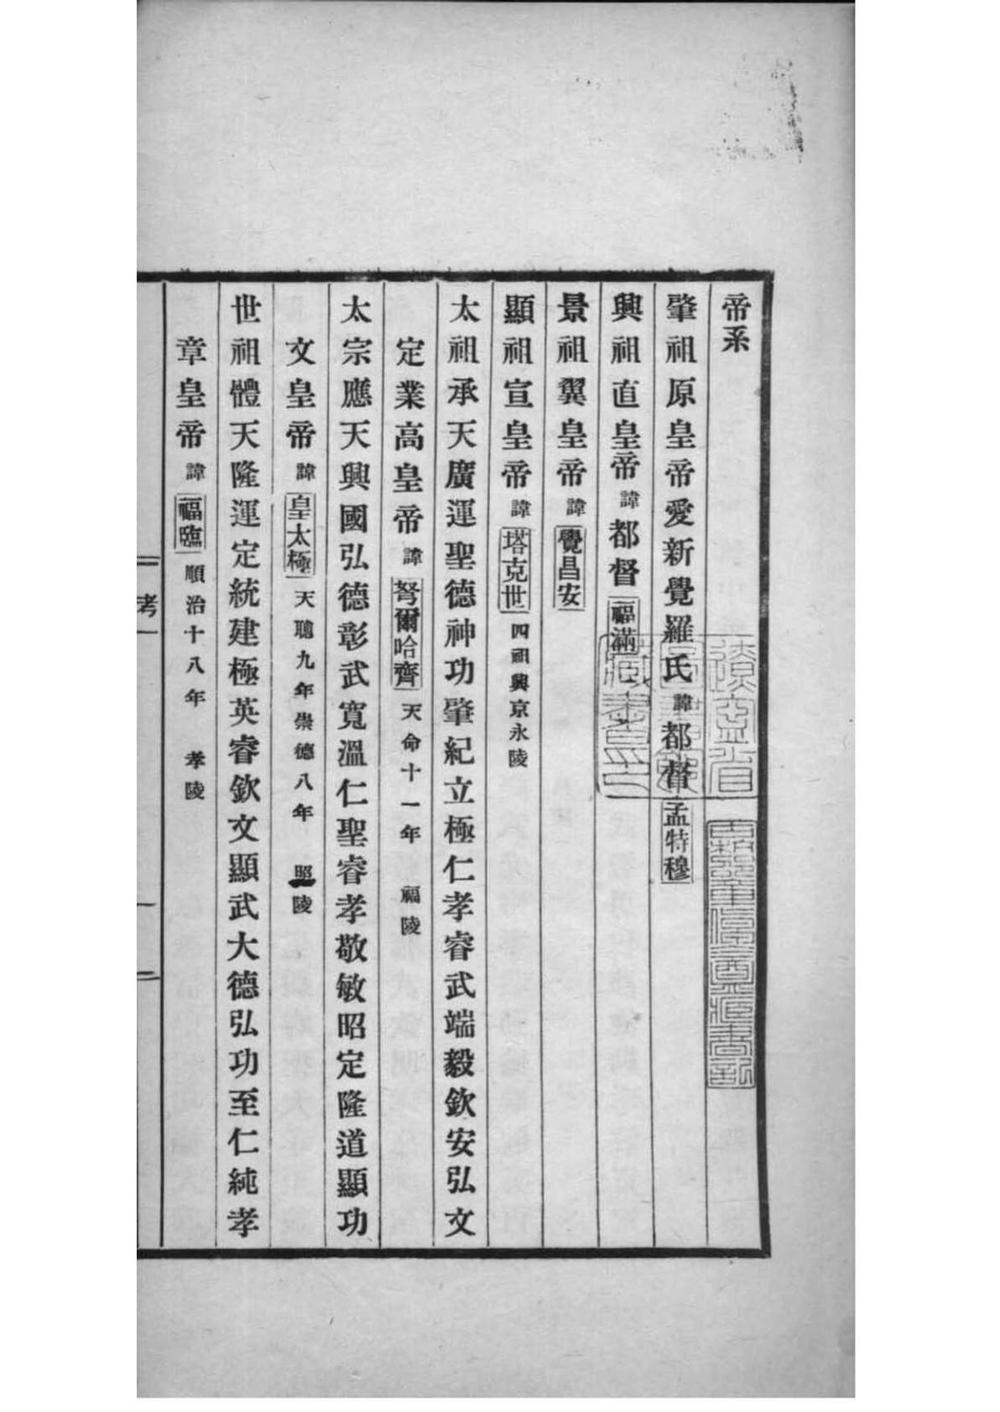 帝系
肇祖原皇帝愛新覺羅氏諱都督孟特穆
興祖直皇帝諱都督福滿
景祖翼皇帝諱覺昌安
顯祖宣皇帝諱塔克世四祖興京永陵
太祖承天廣運聖德神功肇紀立極仁孝睿武端毅欽安弘文
定業高皇帝諱弩爾哈齊天命十一年 福陵
太宗應天興國弘德彰武寬溫仁聖睿孝敬敏昭定隆道顯功
文皇帝諱皇太極天聰九年崇德八年 昭陵
世祖體天隆運定統建極英睿欽文顯武大德弘功至仁純孝
章皇帝諱福臨順治十八年 孝陵
考一